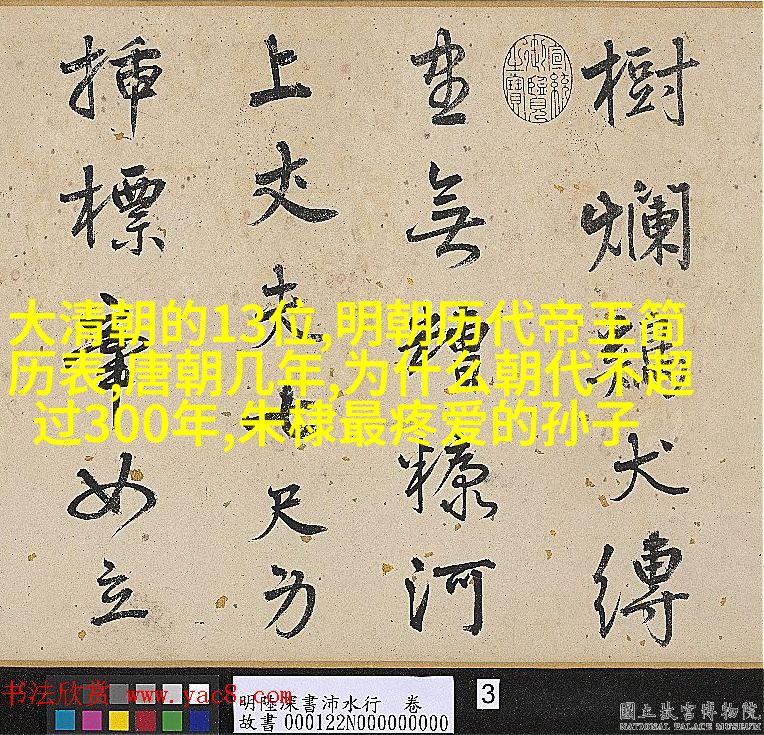 樹爛犬縛
無糠河
上丈夫七尺
插標立
宣統御覽之寶
大清朝的13位,明朝历代帝王简
历表,唐朝几年,为什么朝代不超
过300年,朱棣最疼爱的孙子
书法欣赏 www.yac8.com
明陸深書沛水行 卷
故書 000122N000000000
3
國立故宮博物院
NATIONAL PALACE MUSEUM